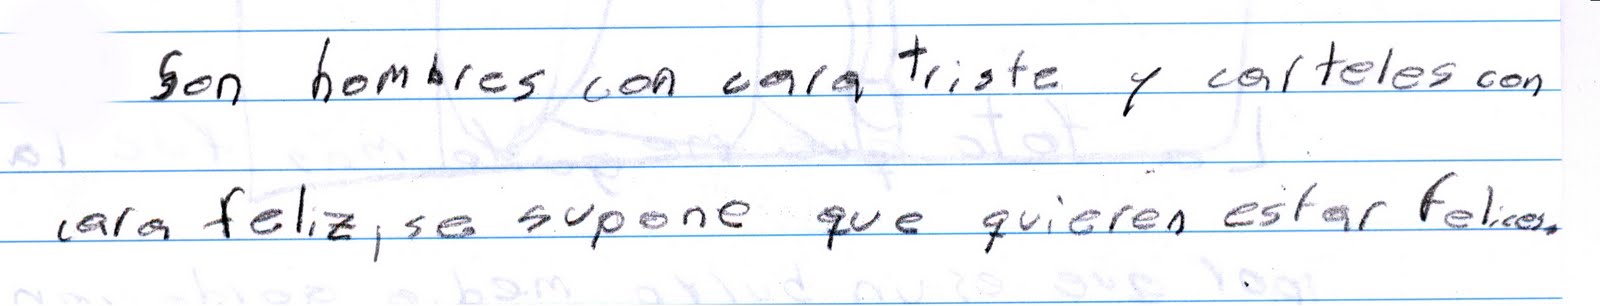 Son hombres con cara triste y carteles con
cara feliz, se supone que quieren estar felices.